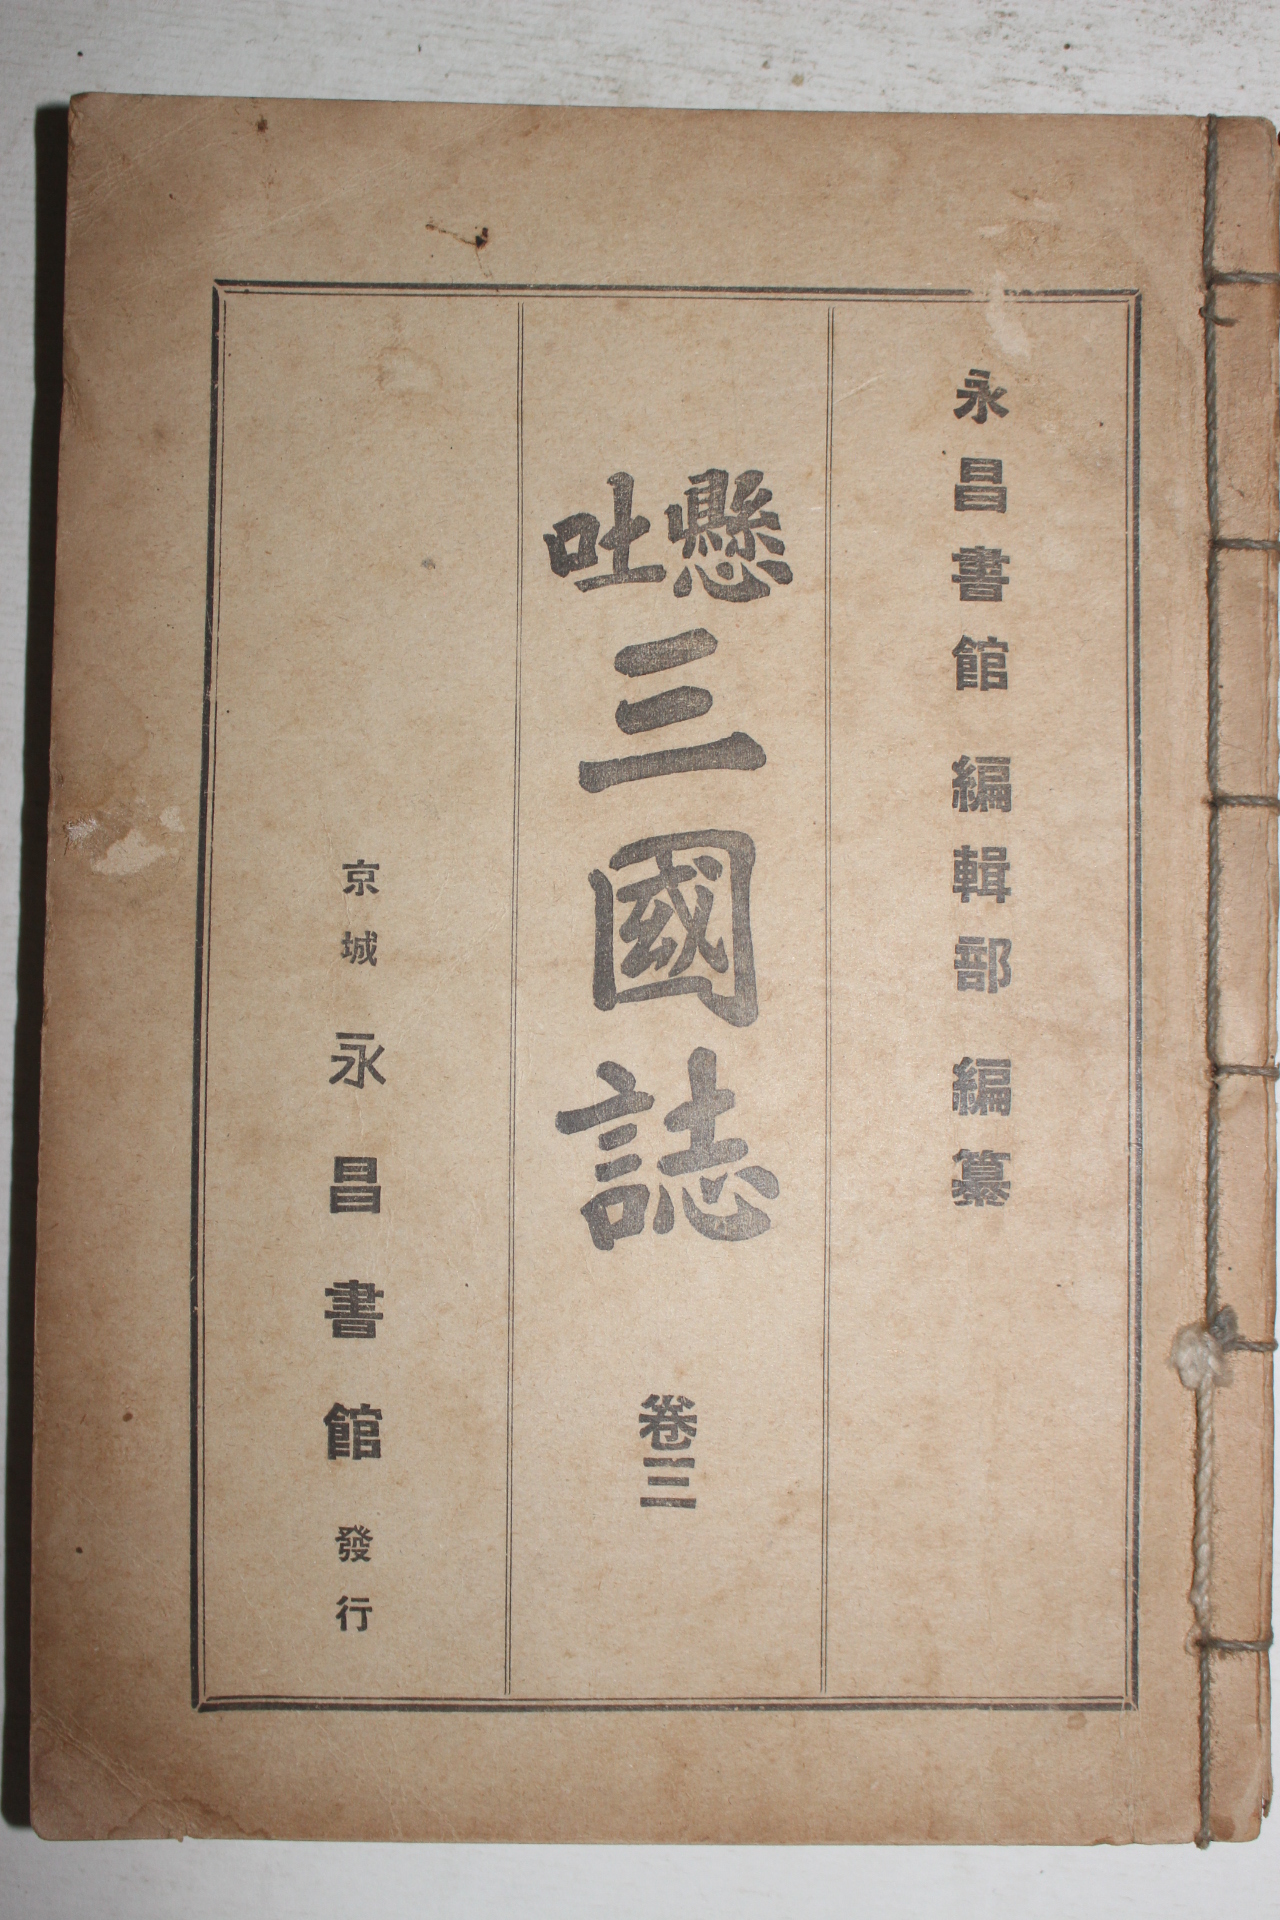 永昌書館 編輯部 編纂
懸吐 三國誌 卷三
京城 永昌書館 發行